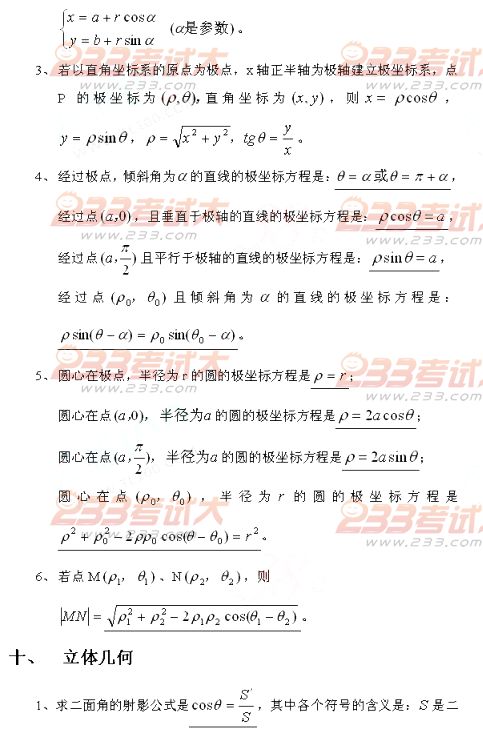 {x = a + r cosα
y = b + r sinα (α是参数)。
3、若以直角坐标系的原点为极点，x轴正半轴为极轴建立极坐标系，点
P 的极坐标为 (ρ,θ)，直角坐标为 (x,y)，则 x = ρcosθ，
y = ρsinθ， ρ = √(x² + y²)， tgθ = y/x。
4、经过极点，倾斜角为α的直线的极坐标方程是：θ = α或θ = π + α，
经过点(a,0)，且垂直于极轴的直线的极坐标方程是：ρcosθ = a，
经过点(a, π/2)且平行于极轴的直线的极坐标方程是：ρsinθ = a，
经过点 (ρ₀, θ₀) 且倾斜角为 α 的直线的极坐标方程是：
ρsin(θ − α) = ρ₀ sin(θ₀ − α)。
5、圆心在极点，半径为r的圆的极坐标方程是ρ = r；
圆心在点(a,0)，半径为a的圆的极坐标方程是ρ = 2acosθ；
圆心在点(a, π/2)，半径为a的圆的极坐标方程是ρ = 2asinθ；
圆心在点 (ρ₀, θ₀)，半径为 r 的圆的极坐标方程是
ρ² + ρ₀² − 2ρρ₀ cos(θ − θ₀) = r²。
6、若点M(ρ₁, θ₁)、N(ρ₂, θ₂)，则
|MN| = √(ρ₁² + ρ₂² − 2ρ₁ρ₂ cos(θ₁ − θ₂))。
十、 立体几何
1、求二面角的射影公式是cosθ = S′/S，其中各个符号的含义是：S是二
233考试大
www.233.com